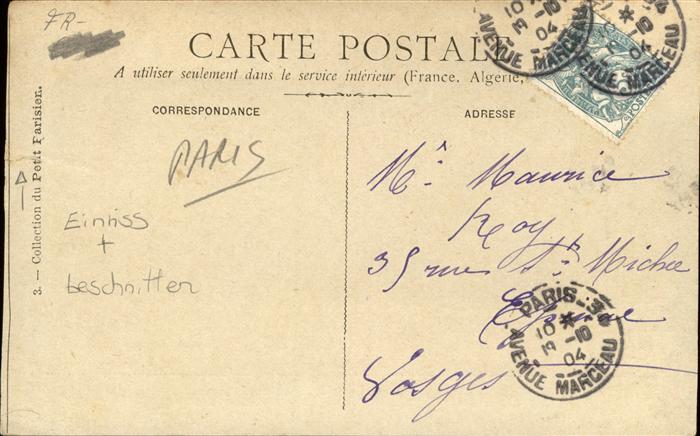 FR-
CARTE POSTALE
A utiliser seulement dans le service intérieur (France, Algérie,
CORRESPONDANCE
ADRESSE
PARIS
Einriss
+
beschnitten
3. — Collection du Petit Parisien.
Mr. Maurice
Roy
35 rue St Michel
Epinal
Vosges
10
19-10
04
AVENUE MARCEAU
AVENUE MARCEAU
PARIS-34
10 *
19-10
04
AVENUE MARCEAU